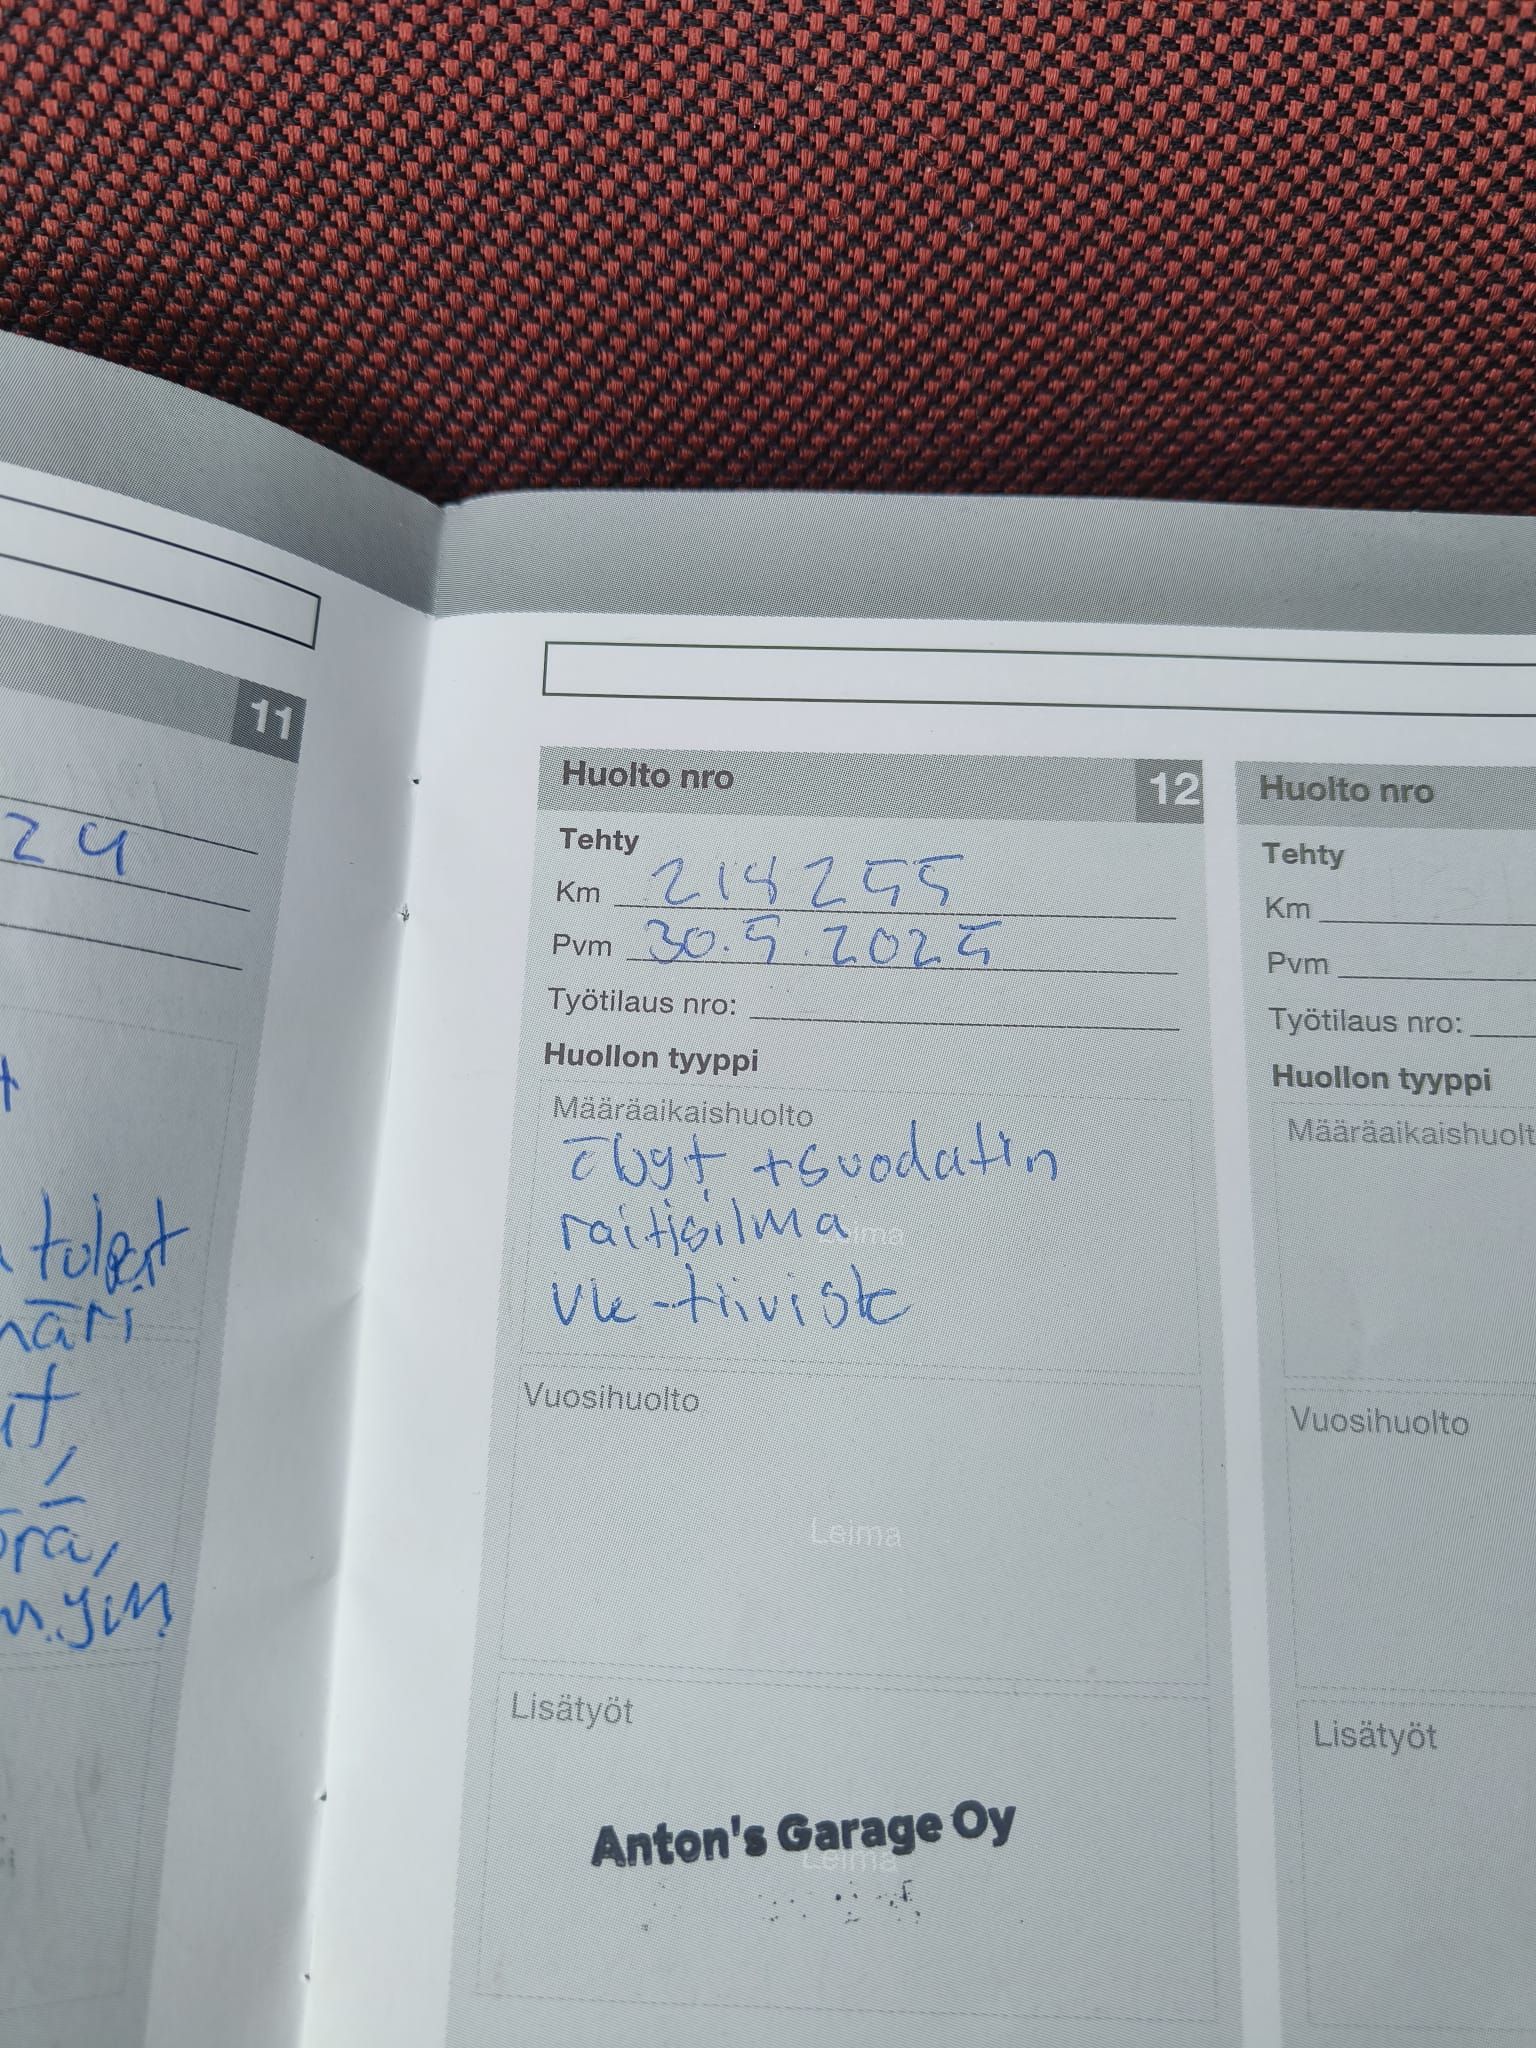 11
24
tulpat
Huolto nro 12
Tehty
Km 214255
Pvm 30.5.2025
Työtilaus nro:
Huollon tyyppi
Määräaikaishuolto
öljyt + suodatin
raitisilma
Leima
vk-tiiviste
Vuosihuolto
Leima
Lisätyöt
Anton's Garage Oy
Leima
Huolto nro
Tehty
Km
Pvm
Työtilaus nro:
Huollon tyyppi
Määräaikaishuolt
Vuosihuolto
Lisätyöt